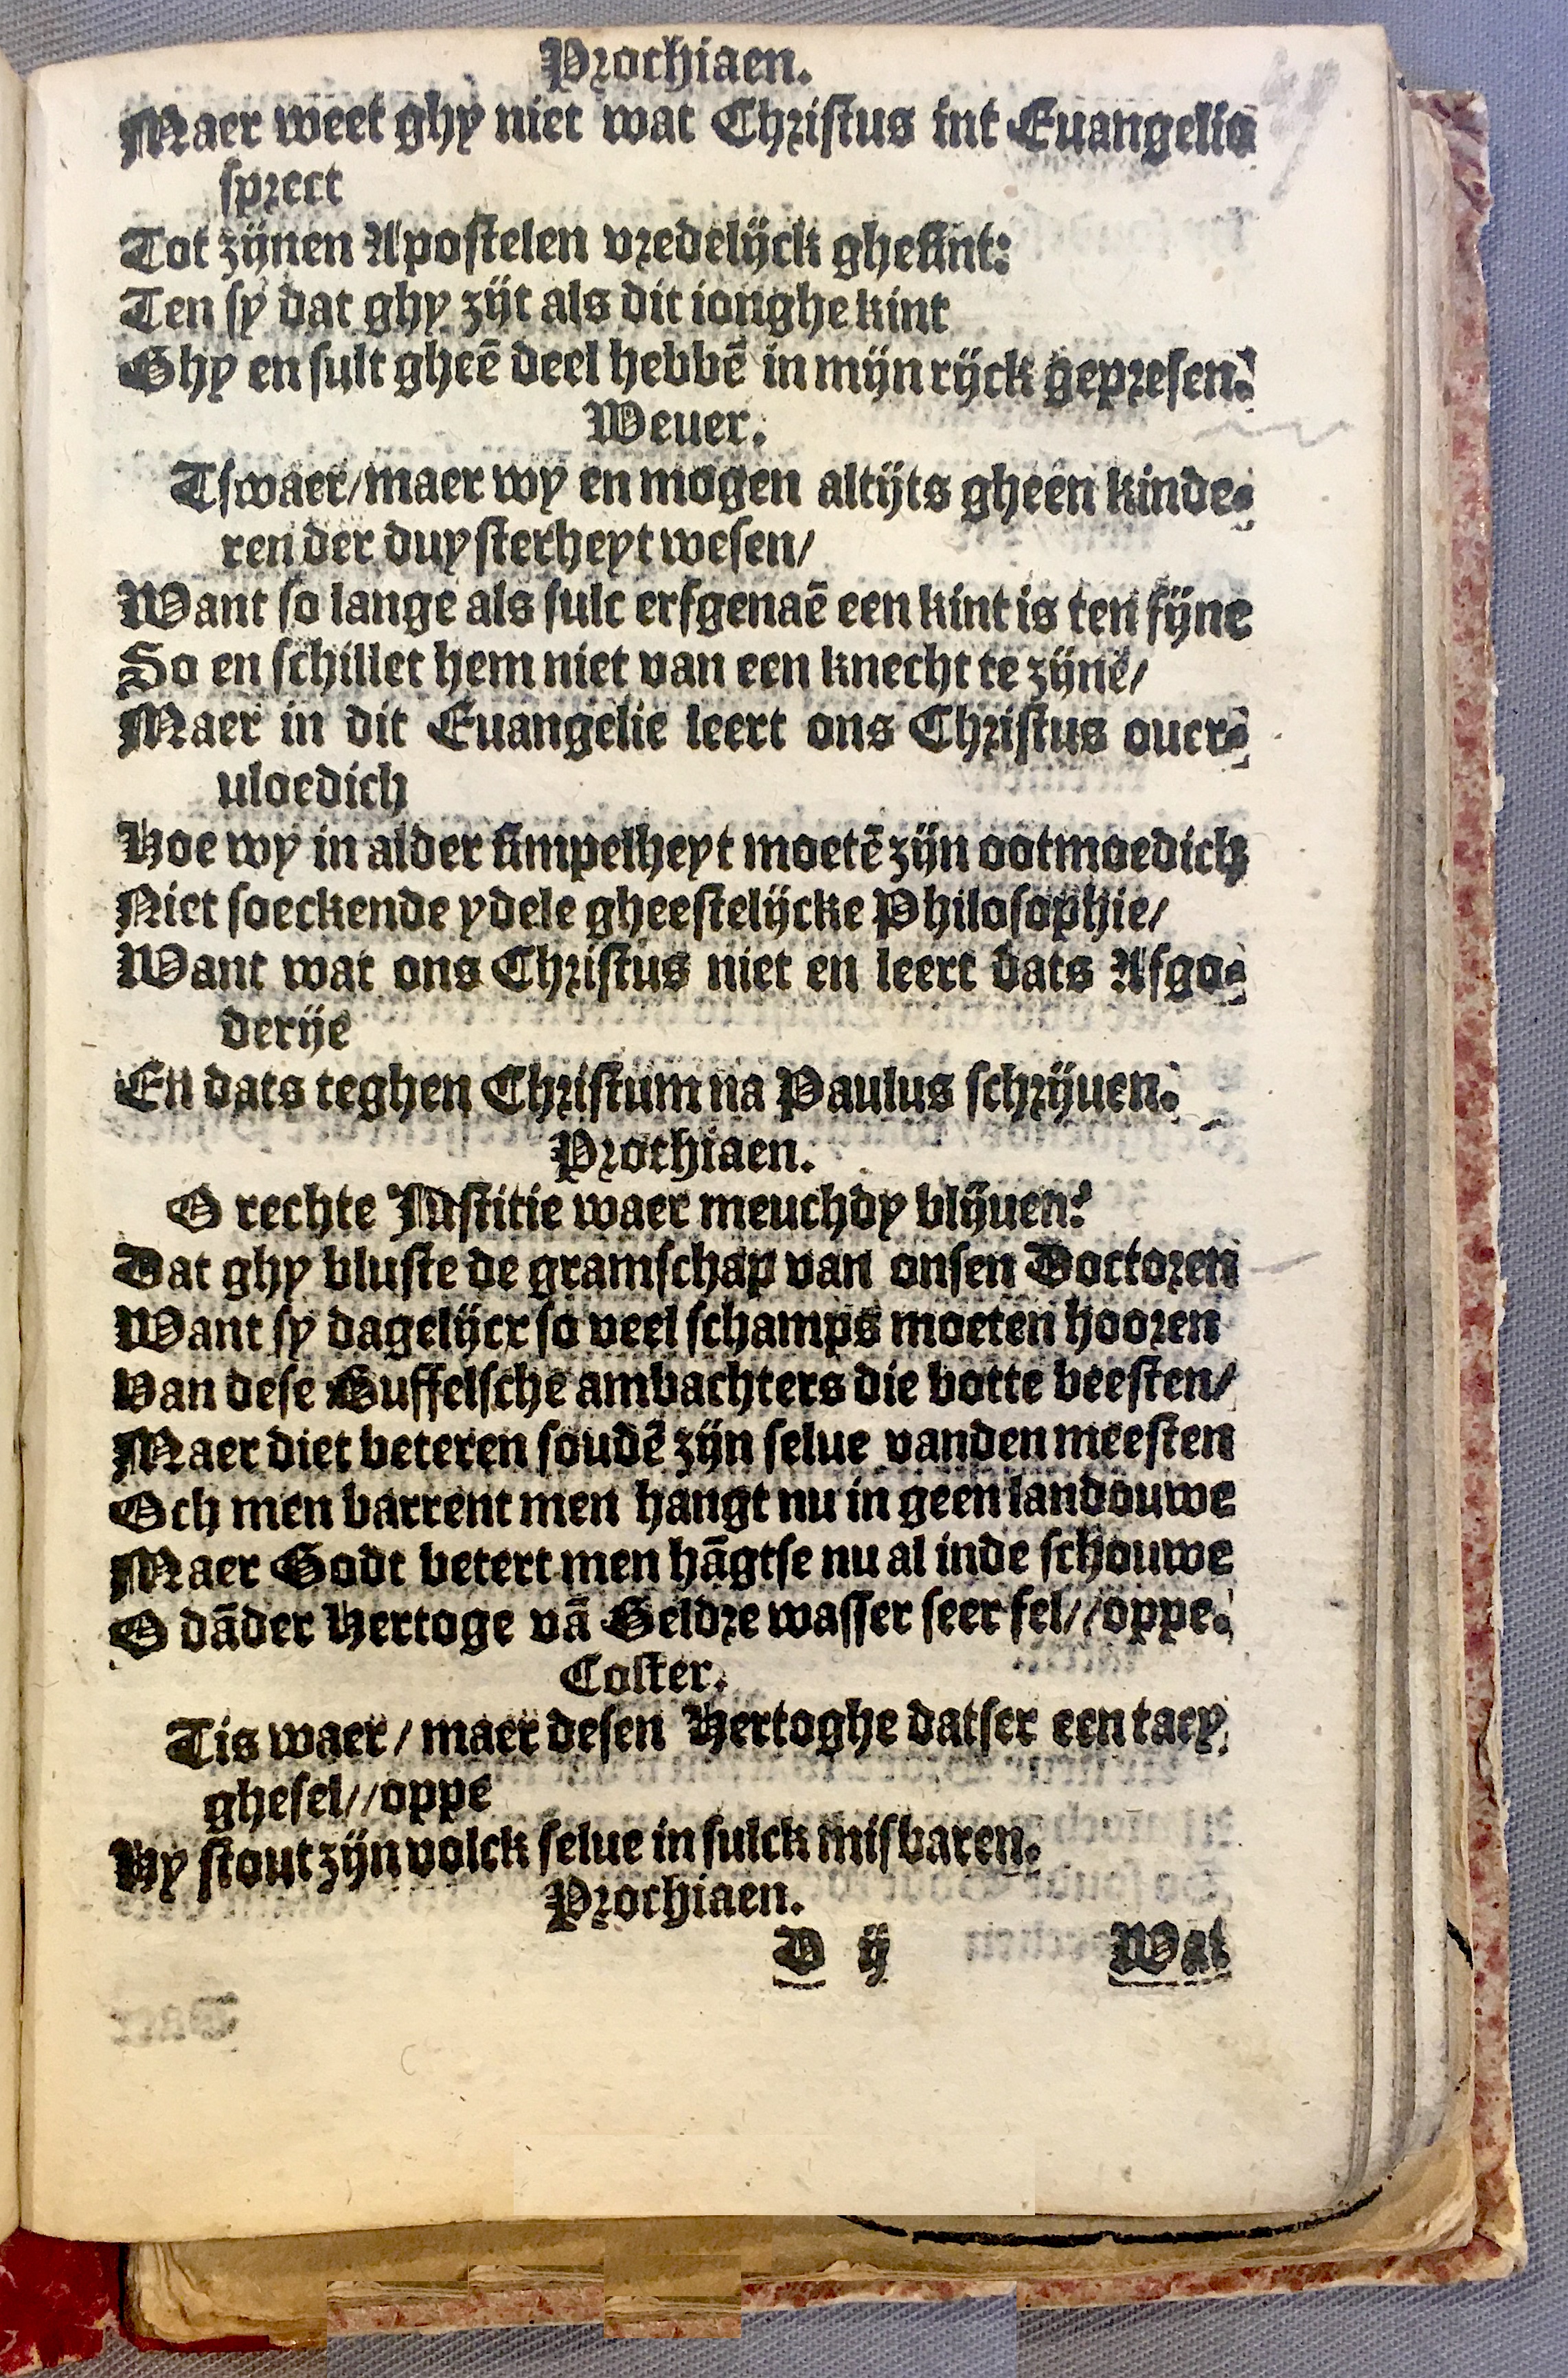 Prochiaen.
Maer weet ghy niet wat Christus int Euangelie
sprect
Tot zijnen Apostelen vredelijck ghesint:
Ten sy dat ghy zijt als dit ionghe kint
Ghy en sult gheē deel hebbē in mijn rijck gepresen.
Weuer.
Tswaer/maer wy en mogen altijts gheen kinde-
ren der duysterheyt wesen/
Want so lange als sulc erfgenaē een kint is ten fijne
So en schillet hem niet van een knecht te zijne/
Maer in dit Euangelie leert ons Christus ouer-
uloedich
Hoe wy in alder simpelheyt moetē zijn ootmoedich
Niet soeckende ydele gheestelijcke Philosophie/
Want wat ons Christus niet en leert dats Afgo-
derije
En dats teghen Christum na Paulus schrijuen.
Prochiaen.
O rechte Iustitie waer meuchdy blijuen?
Dat ghy bluste de gramschap van onsen Doctoren
Want sy dagelijcx so veel schamps moeten hooren
Van dese Buffelsche ambachters die botte beesten/
Maer diet beteren soudē zijn selue vanden meesten
Och men barrent men hangt nu in geen landouwe
Maer Godt betert men hāgtse nu al inde schouwe
O dāder Hertoge vā Geldre wasser seer fel//oppe.
Coster.
Tis waer/ maer desen Hertoghe datser een taey
ghesel//oppe
Hy stout zijn volck selue in sulck misbaren.
Prochiaen.
D ij Wat